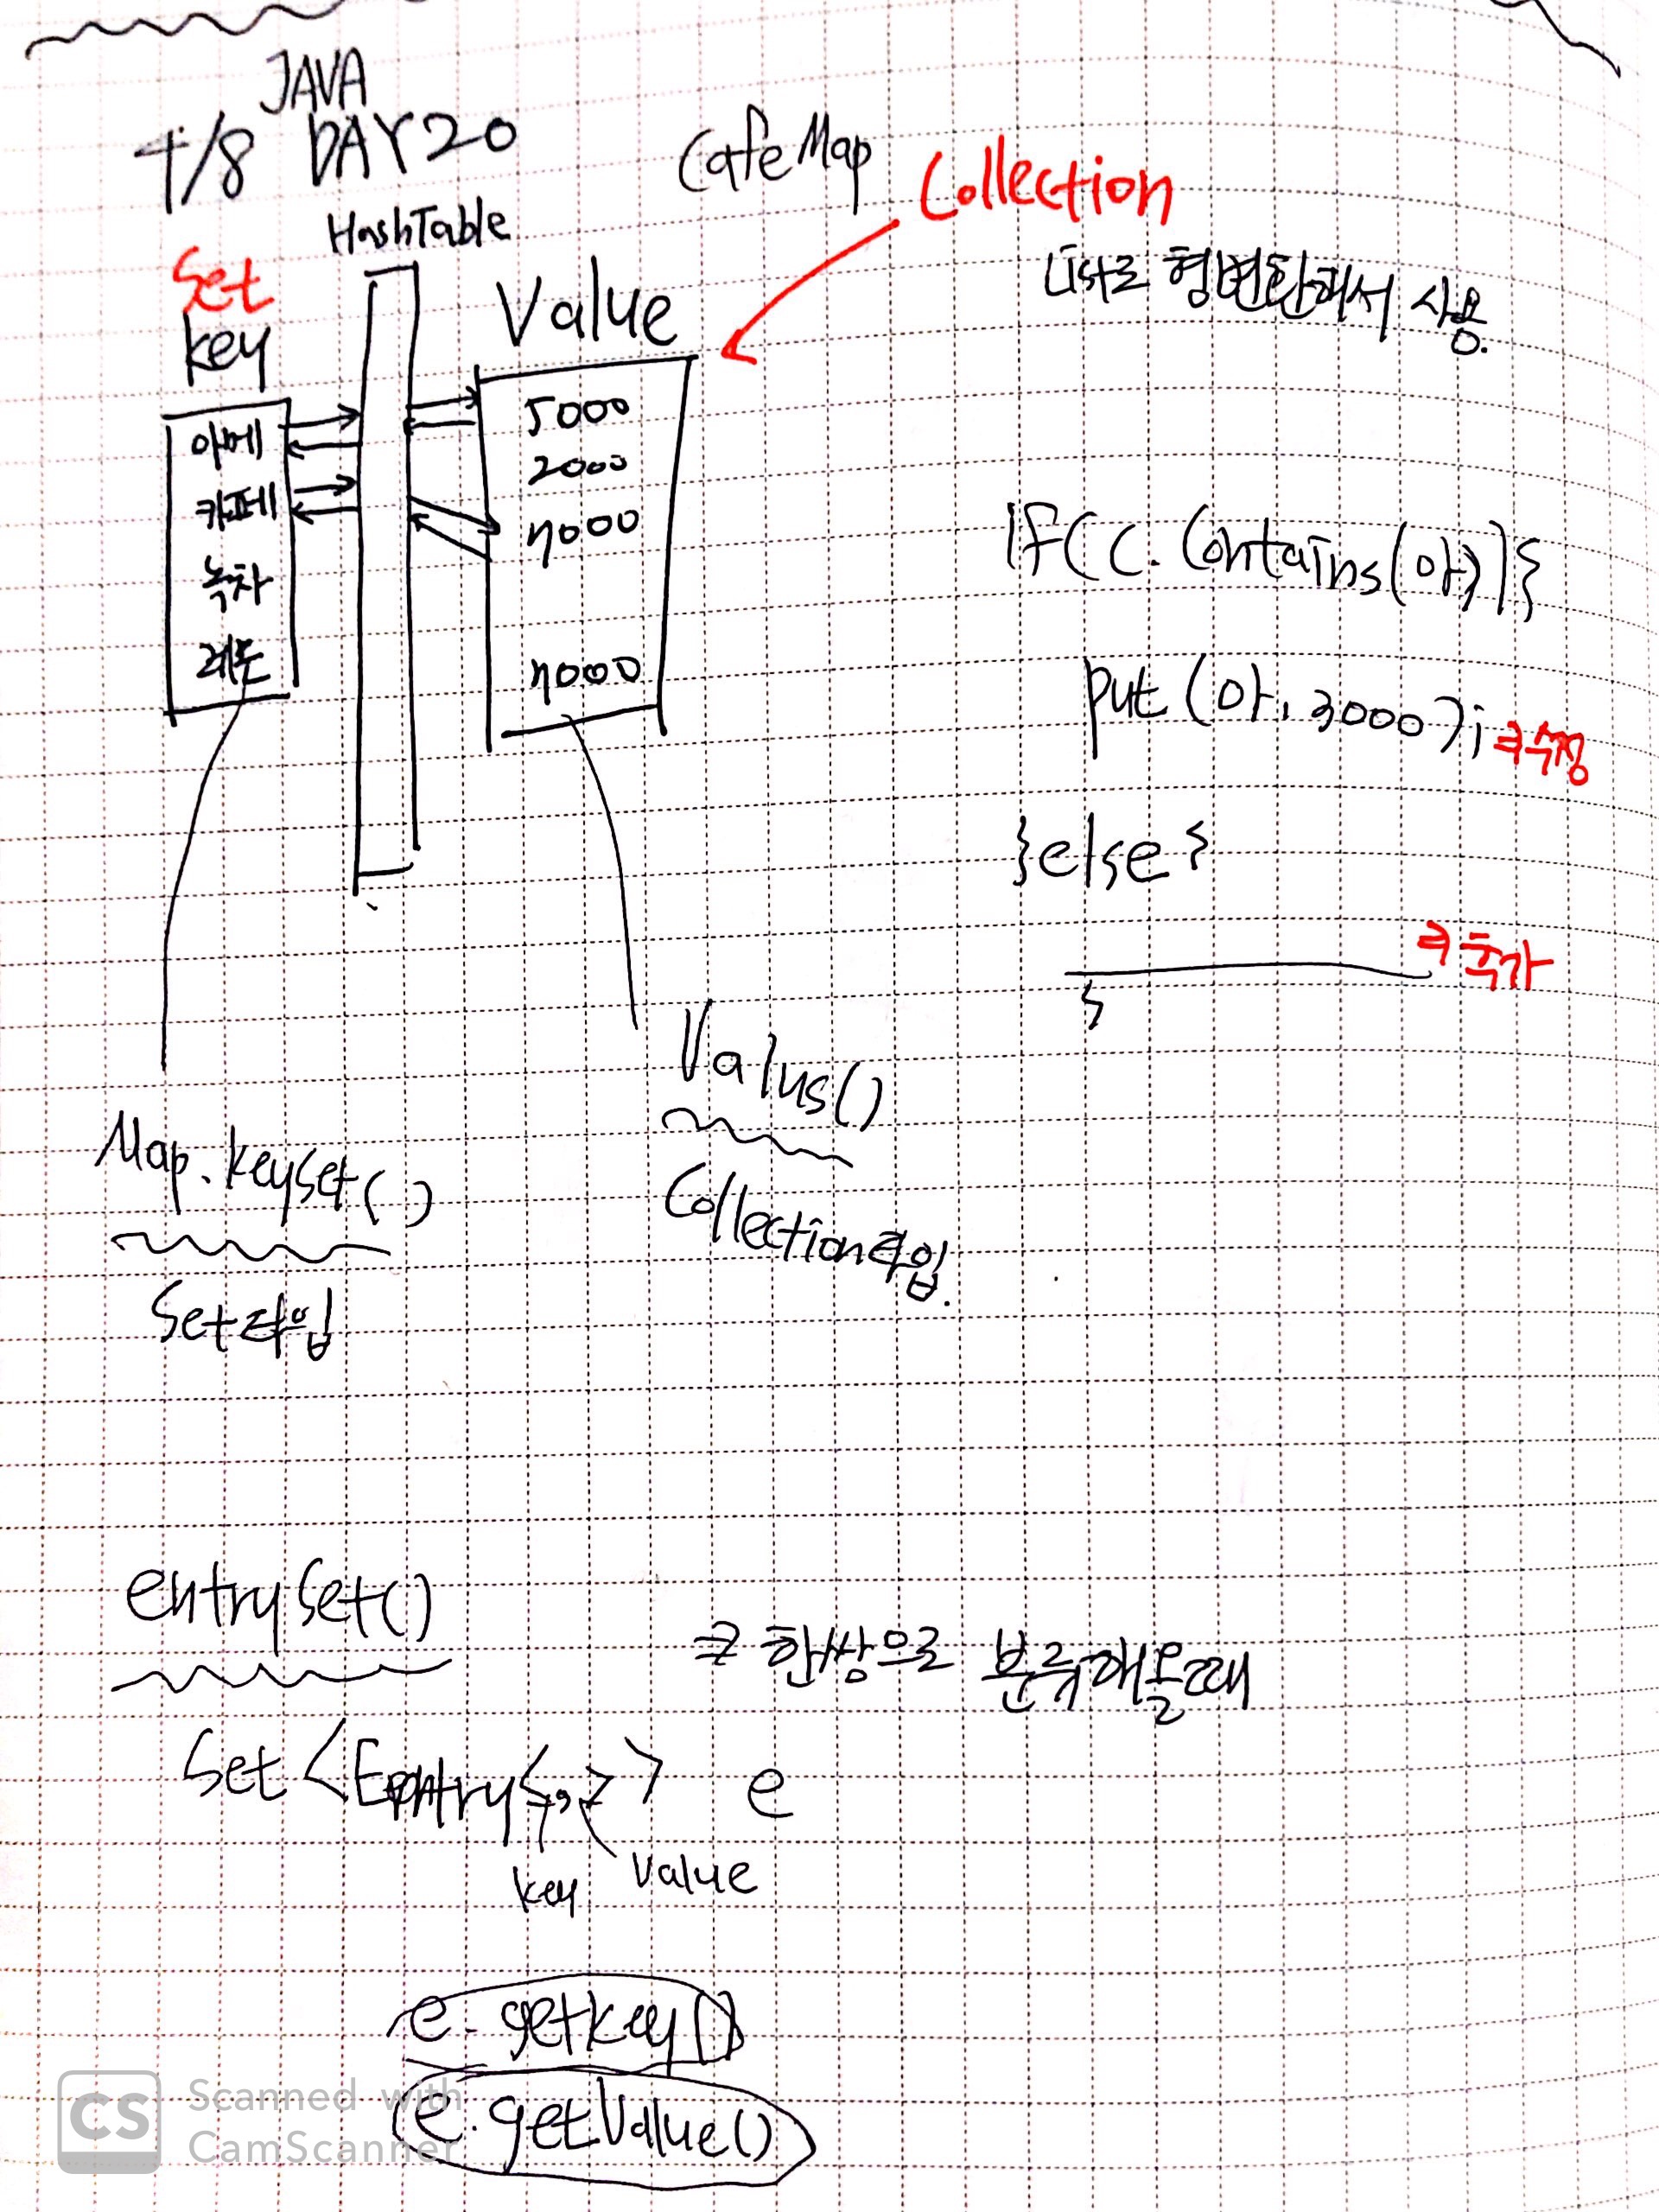 JAVA
4/8 DAY20
CafeMap
Collection
HashTable
List로 형변환해서 사용.
Set
key
Value
아메
카페
녹차
레몬
5000
2000
7000
7000
If(c.contains(아)){
put(아, 3000);
⇒수정
}else{
⇒추가
}
Map.keyset()
Set타입
Valus()
Collection타입.
entrySet()
⇒ 한쌍으로 분류해올때
Set<Entry< , >> e
key
Value
e.getkey()
e.getValue()
CS
Scanned with
CamScanner